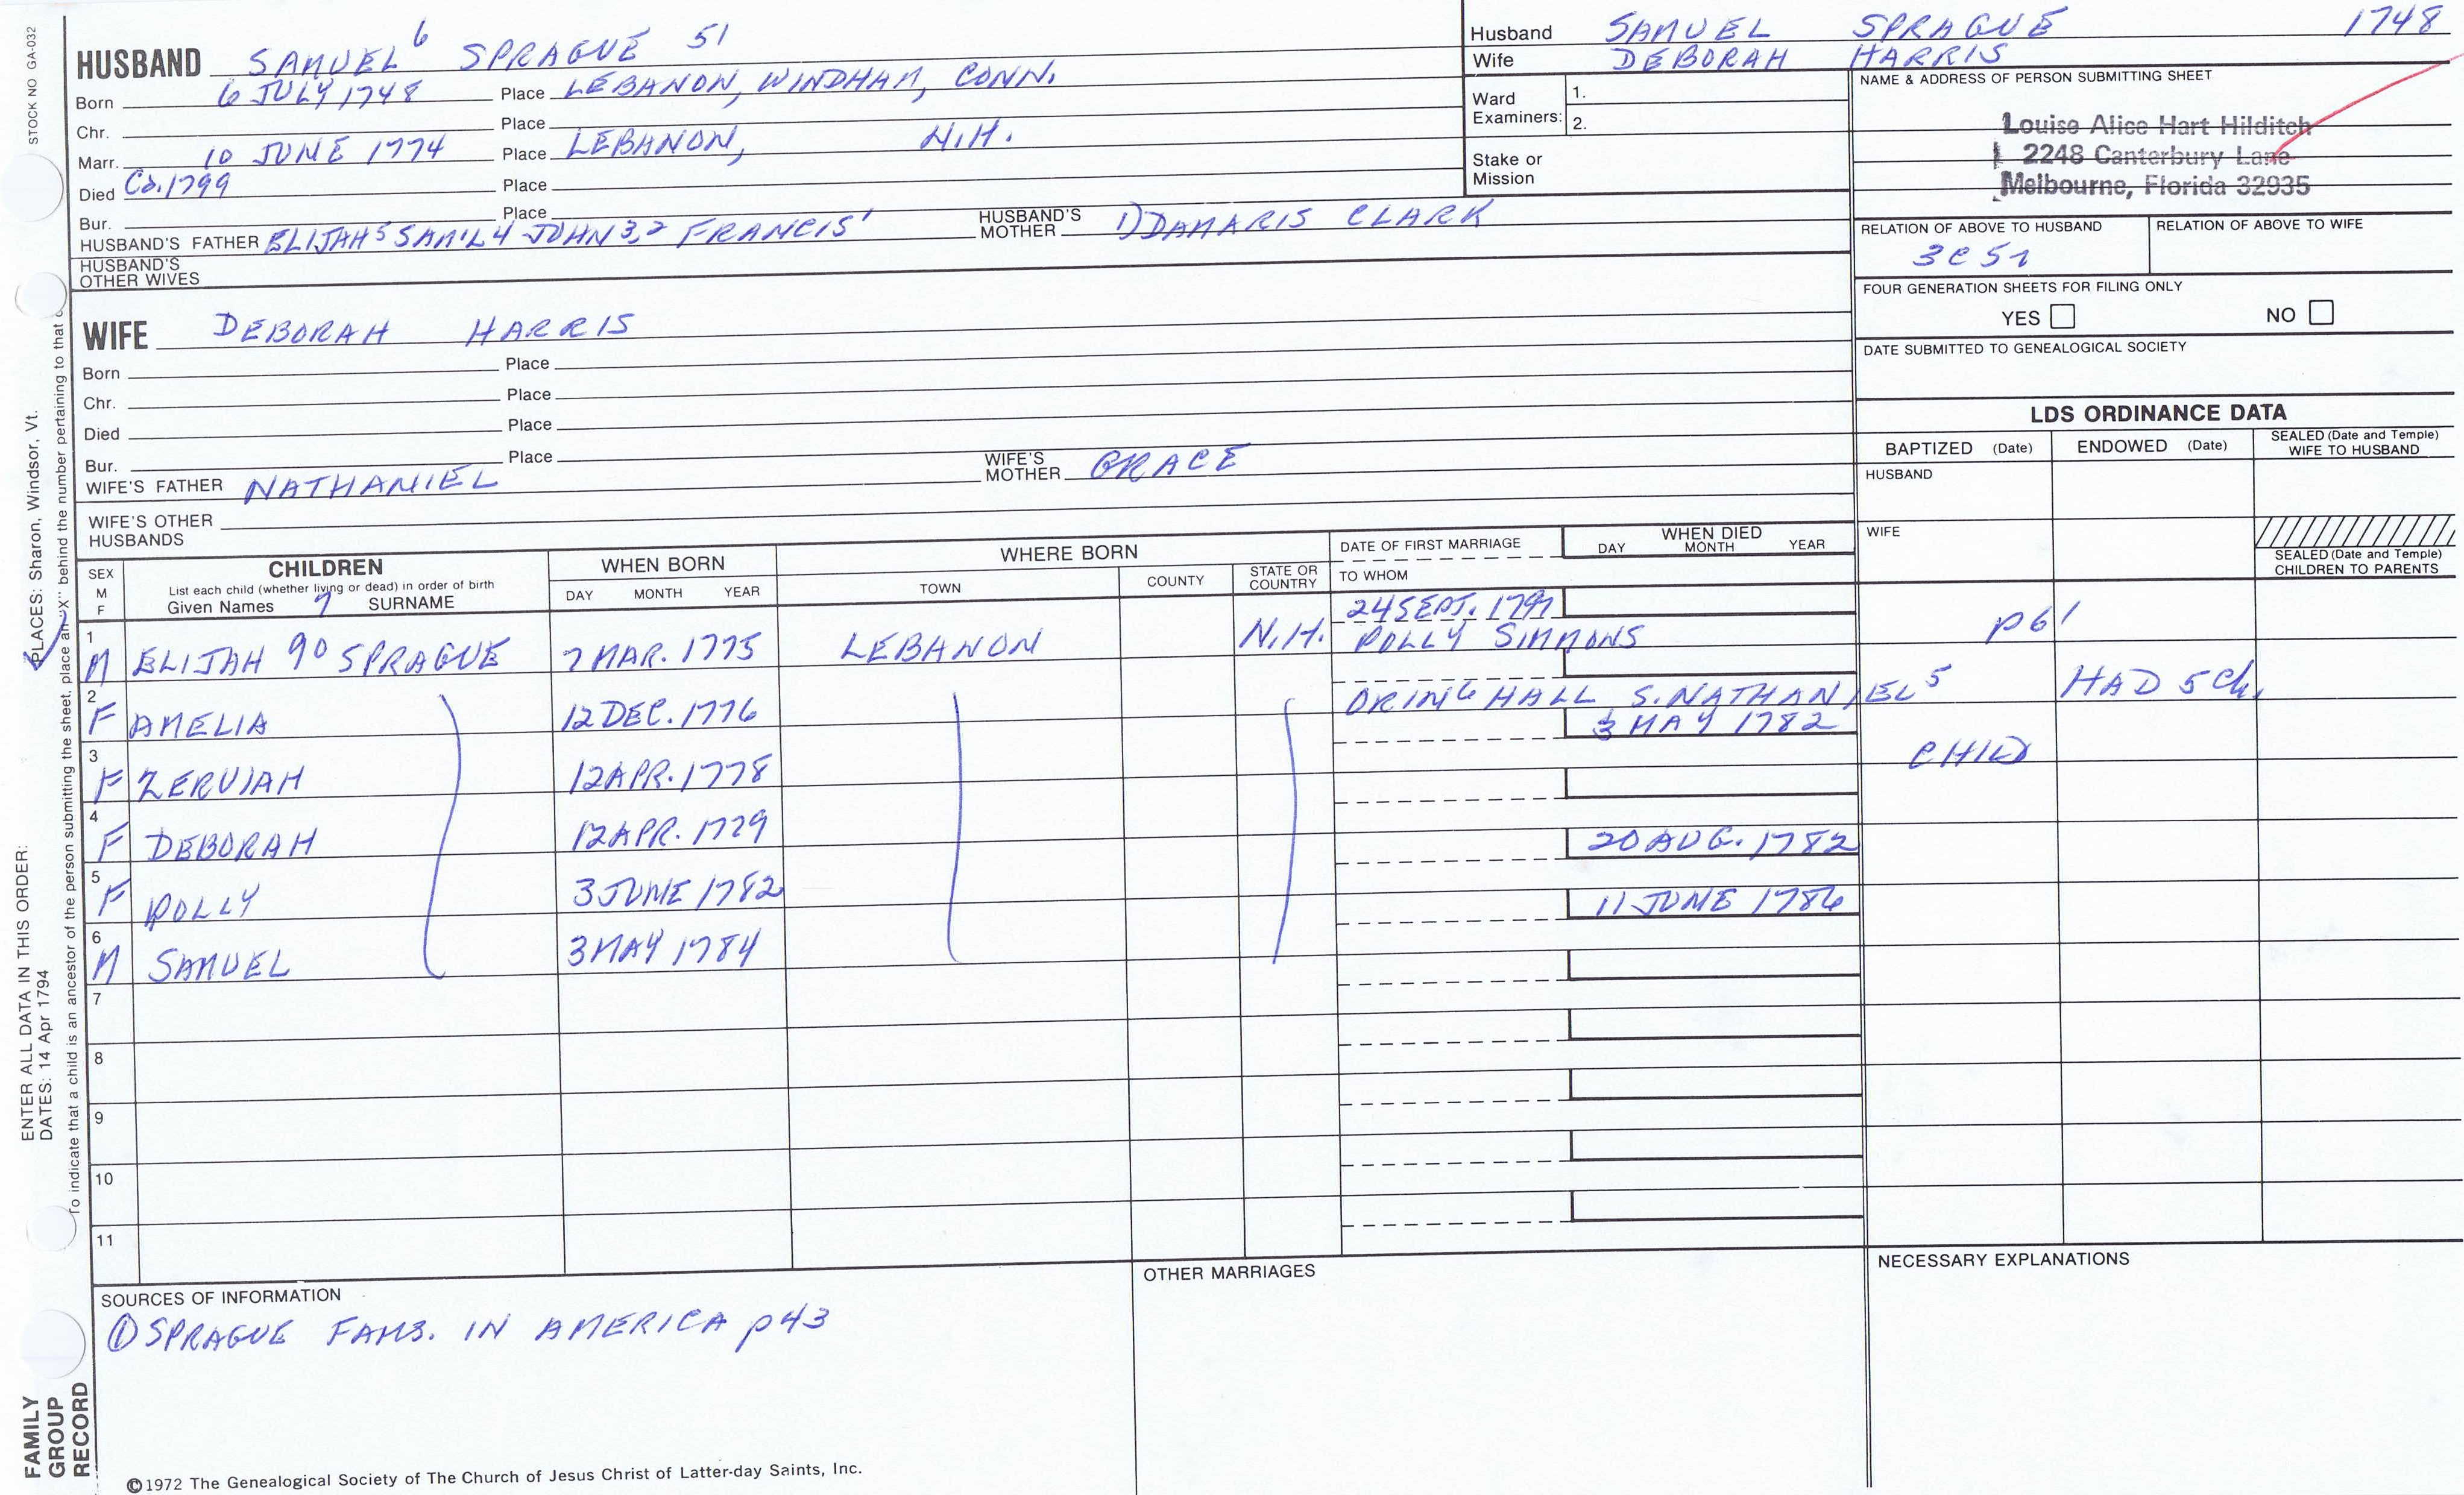 STOCK NO GA-032
HUSBAND SAMUEL⁶ SPRAGUE 51
Born 6 JULY 1748 Place LEBANON, WINDHAM, CONN.
Chr. Place
Marr. 10 JUNE 1774 Place LEBANON, N.H.
Died Ca.1799 Place
Bur. Place
HUSBAND'S FATHER ELIJAH⁵ SAM'L4 JOHN3,2 FRANCIS¹ HUSBAND'S MOTHER 1) DAMARIS CLARK
HUSBAND'S OTHER WIVES
WIFE DEBORAH HARRIS
Born Place
Chr. Place
Died Place
Bur. Place
WIFE'S FATHER NATHANIEL WIFE'S MOTHER GRACE
WIFE'S OTHER HUSBANDS
Husband SAMUEL SPRAGUE 1748
Wife DEBORAH HARRIS
Ward Examiners: 1.
2.
Stake or Mission
NAME & ADDRESS OF PERSON SUBMITTING SHEET
Louise Alice Hart Hilditch
2248 Canterbury Lane
Melbourne, Florida 32935
RELATION OF ABOVE TO HUSBAND RELATION OF ABOVE TO WIFE
3C5r
FOUR GENERATION SHEETS FOR FILING ONLY
YES NO
DATE SUBMITTED TO GENEALOGICAL SOCIETY
LDS ORDINANCE DATA
BAPTIZED (Date) ENDOWED (Date) SEALED (Date and Temple) WIFE TO HUSBAND
HUSBAND
WIFE
SEALED (Date and Temple) CHILDREN TO PARENTS
SEX M F
CHILDREN
List each child (whether living or dead) in order of birth
Given Names 7 SURNAME
WHEN BORN
DAY MONTH YEAR
WHERE BORN
TOWN COUNTY STATE OR COUNTRY
DATE OF FIRST MARRIAGE
TO WHOM
WHEN DIED
DAY MONTH YEAR
1 M ELIJAH 90 SPRAGUE 7 MAR. 1775 LEBANON N.H. 24 SEPT. 1797 POLLY SIMMONS p61
2 F AMELIA 12 DEC. 1776 ORING HALL S. NATHANIEL⁵ HAD 5 Ch.
3 F ZERUIAH 12 APR. 1778 3 MAY 1782 CHILD
4 F DEBORAH 12 APR. 1779
5 F POLLY 3 JUNE 1782 20 AUG. 1782
6 M SAMUEL 3 MAY 1784 11 JUNE 1786
7
8
9
10
11
SOURCES OF INFORMATION
① SPRAGUE FAMS. IN AMERICA p43
OTHER MARRIAGES
NECESSARY EXPLANATIONS
©1972 The Genealogical Society of The Church of Jesus Christ of Latter-day Saints, Inc.
FAMILY GROUP RECORD
ENTER ALL DATA IN THIS ORDER:
DATES: 14 Apr 1794
PLACES: Sharon, Windsor, Vt.
To indicate that a child is an ancestor of the person submitting the sheet, place an "X" behind the number pertaining to that